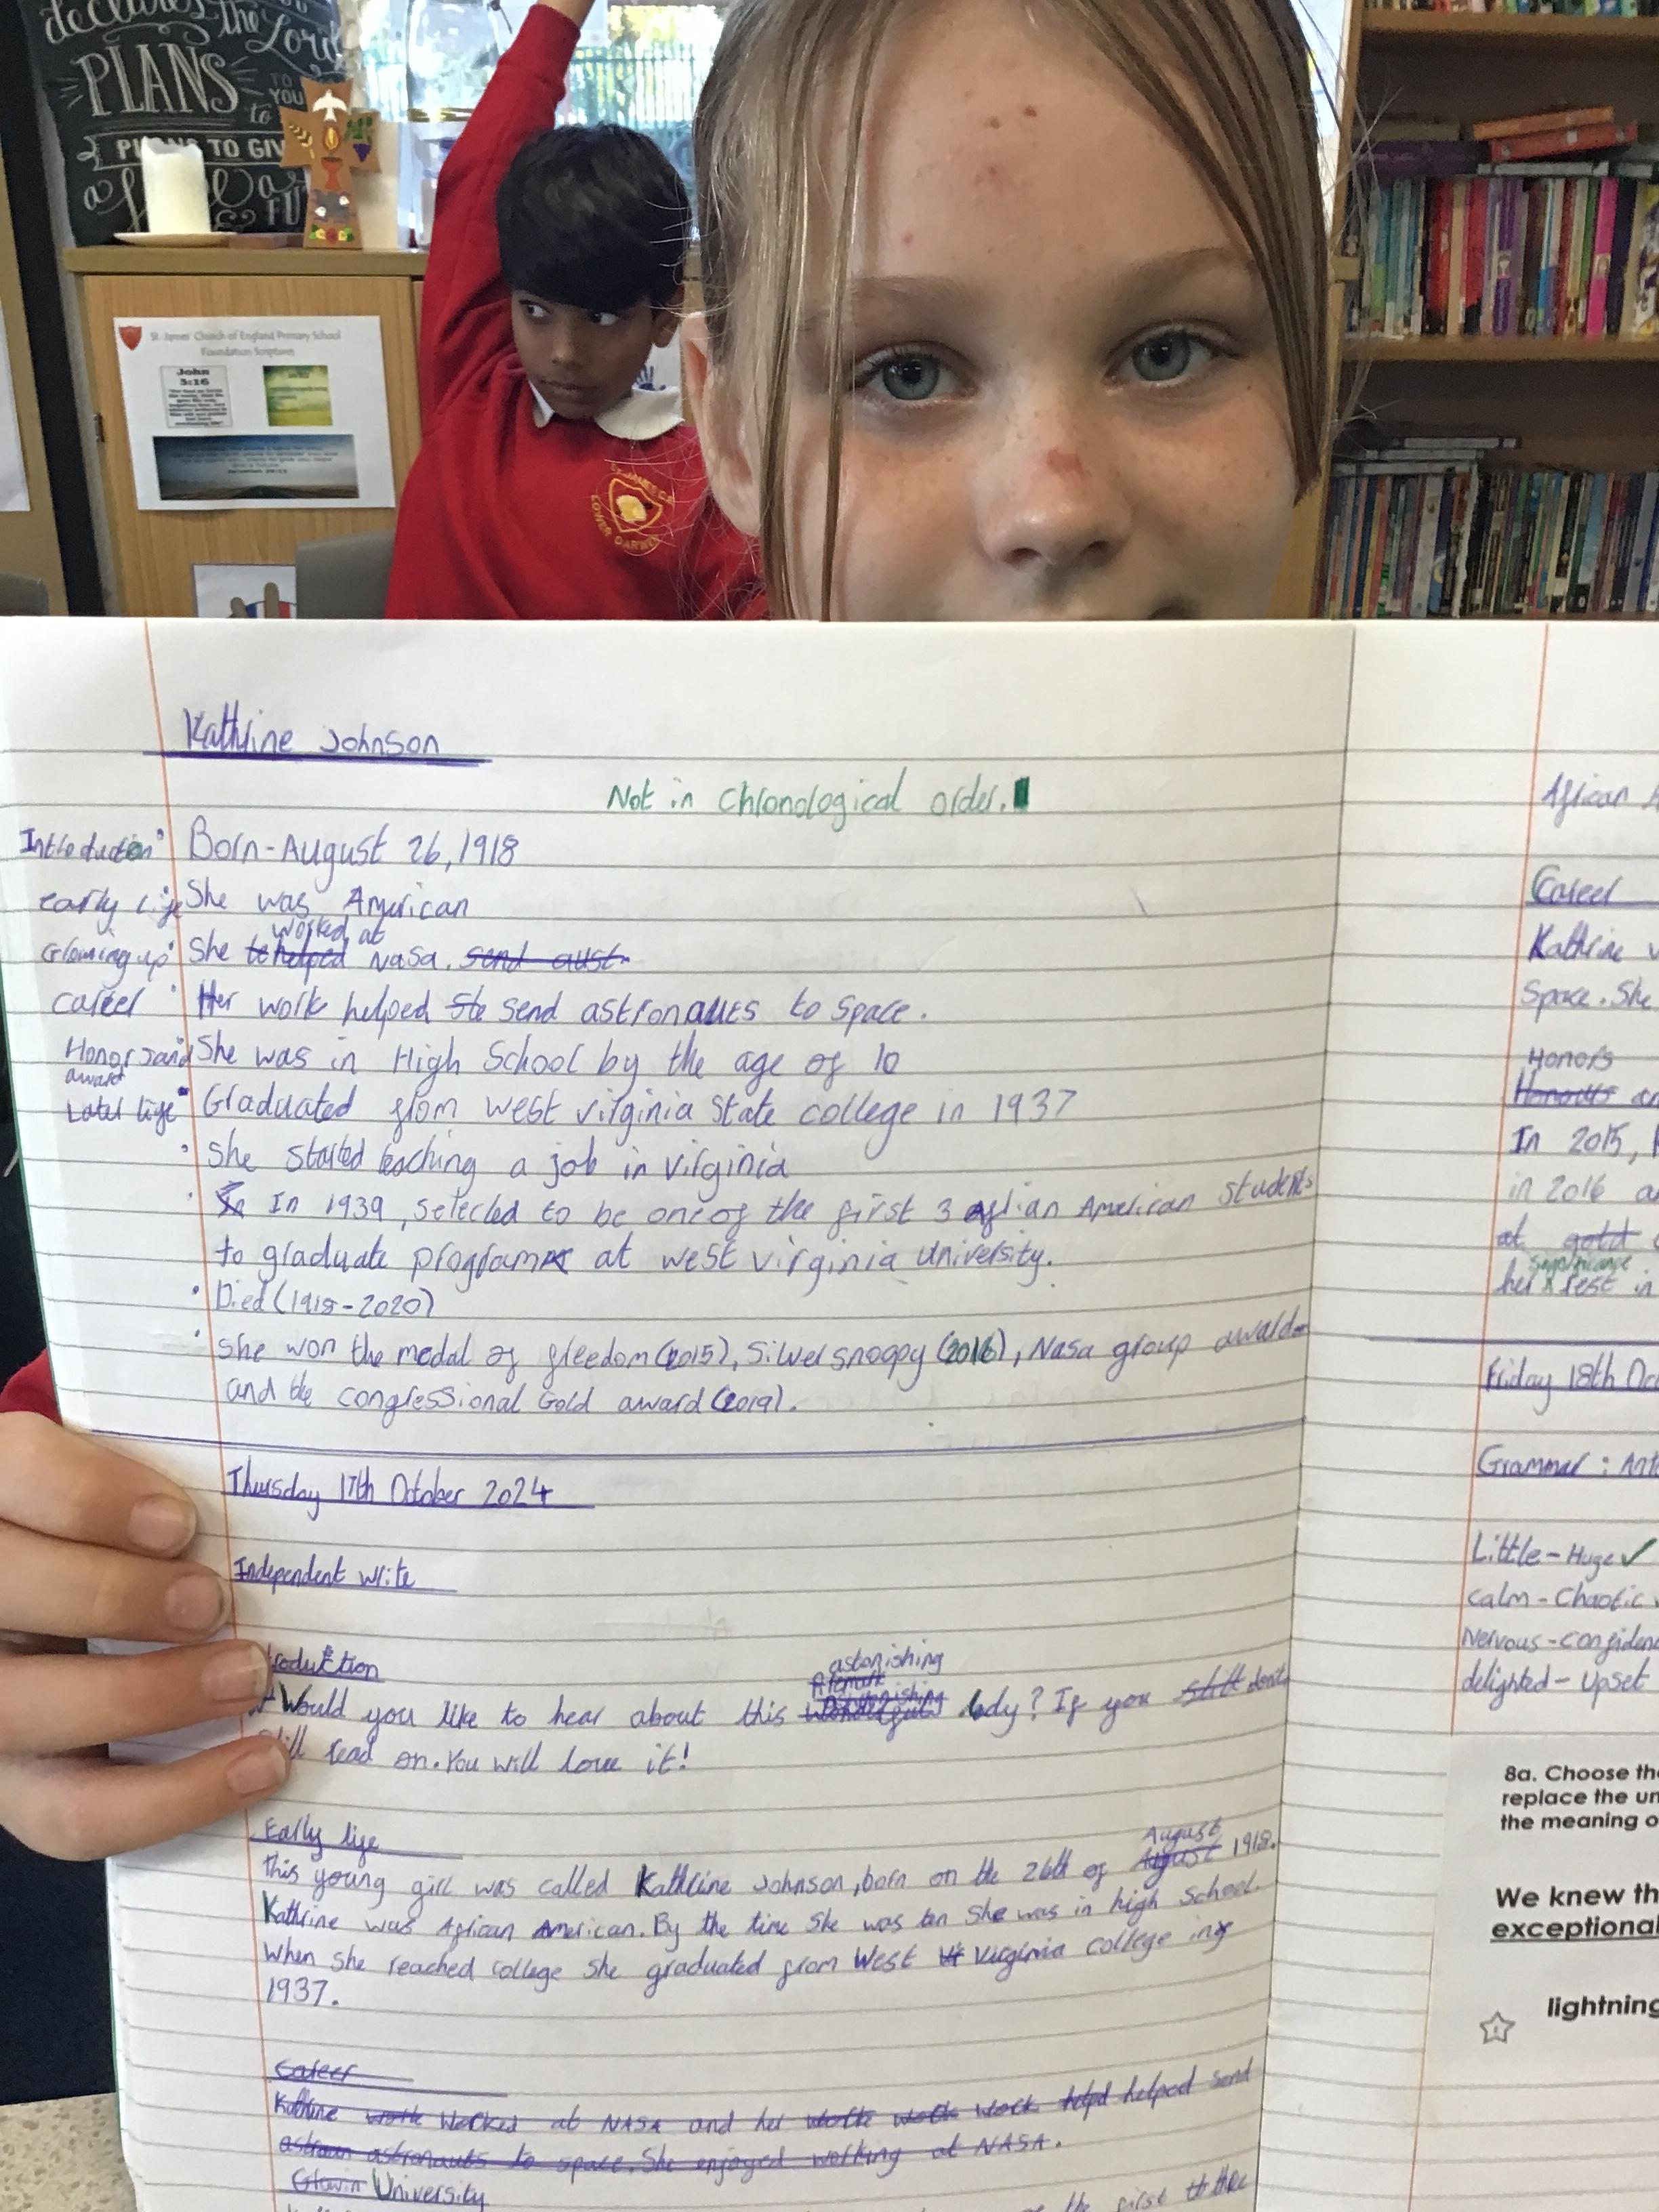 declares the Lord
PLANS
TO YOU
to
PLANS TO GIVE
a
FU
St. James' Church of England Primary School
Foundation Scriptures
John
3:16
ST. JAMES C.E.
LOWER DARWEN
Kathrine Johnson
Not in Chronological order.
Introduction
Born - August 26, 1918
early life
She was American
worked at
Growing up
She to helped Nasa. send aust
career
Her work helped Ste send astronauts to space.
Honors and
award
She was in High School by the age of 10
Later life
Graduated from west virginia State college in 1937
she started teaching a job in virginia
In 1939, selected to be one of the first 3 afrian American students
to graduate program at west virginia university.
Died (1918-2020)
she won the medal of freedom (2015), Silver snoopy (2016), Nasa group award
and the congressional Gold award (2019).
Thursday 17th October 2024
Independent write
troduction
astonishing
Would you like to hear about this lady? If you still dont
still read on. You will love it!
Early life
August
this young girl was called Kathrine Johnson, born on the 26th of August 1918.
Kathrine was African American. By the time she was ten she was in high school.
when she reached college she graduated from West Vi Virginia college in
1937.
Career
Kathrine work worked at NASA and her work work helped send
astronauts to space. She enjoyed working at NASA.
Growin University
the first three
African A
Career
Kathrine w
Space. She
Honors
Honours an
In 2015,
in 2016 a
at gold
significance
her rest in
Friday 18th Oc
Grammar : Ant
Little - Huge
calm - Chaotic
Nervous - confiden
delighted - upset
8a. Choose the
replace the un
the meaning o
We knew th
exceptional
lightning